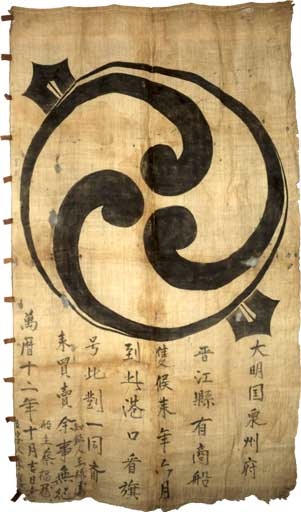 大明国泉州府
晋江縣有商船
隻候来年六月
到此港口看旗
号此對一同斉
来買賣余事無紀
船主蔡
萬暦十二年十月吉日